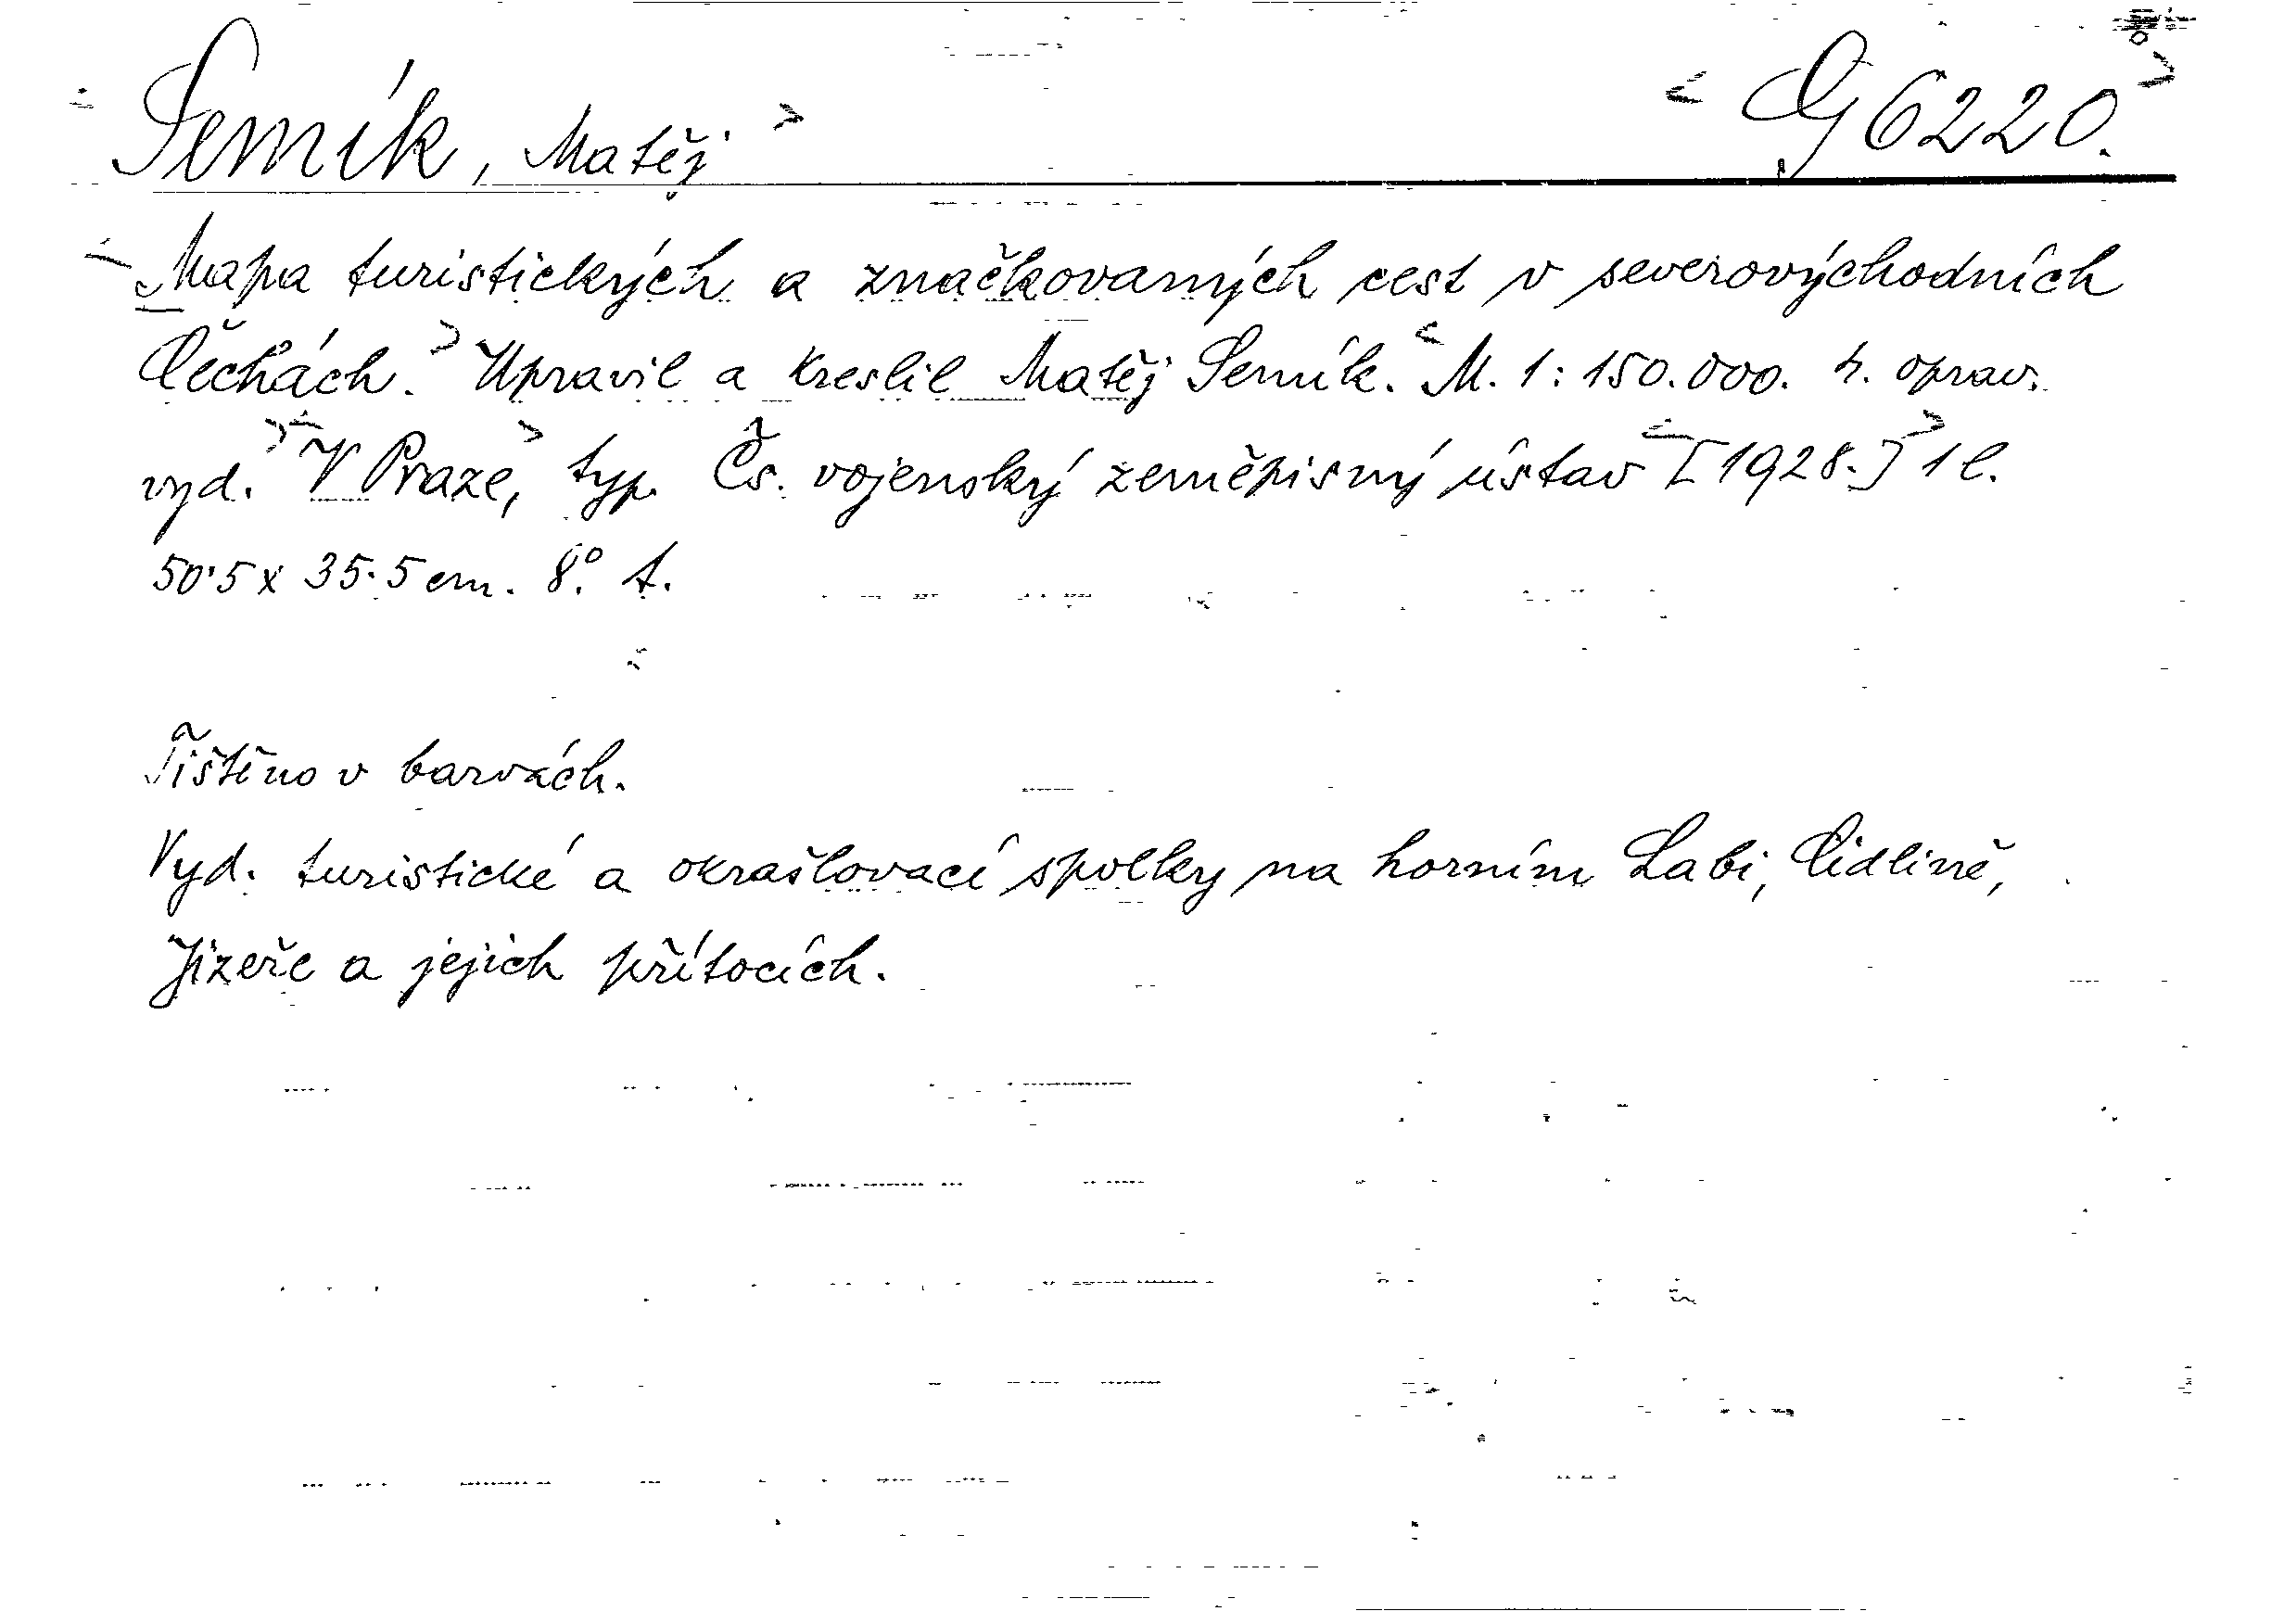 Semík, Matěj G 6220.
Mapa turistických a značkovaných cest v severovýchodních
Čechách. Upravil a kreslil Matěj Semík. M. 1:150.000. 4. oprav.
vyd. V Praze, typ. Čs. vojenský zeměpisný ústav [1928.] 1 l.
50·5 x 35·5 cm. 8.°
Tištěno v barvách.
Vyd. turistické a okrašlovací spolky na horním Labi, Cidlině,
Jizeře a jejich přítocích.